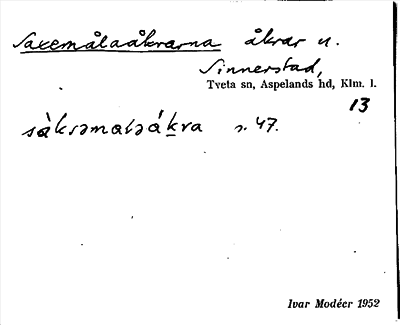 Saxemålaåkrarna åkrar u.
Sinnerstad,
Tveta sn, Aspelands hd, Klm. l.
13
sàksəmaləåkra s. 47.
Ivar Modéer 1952